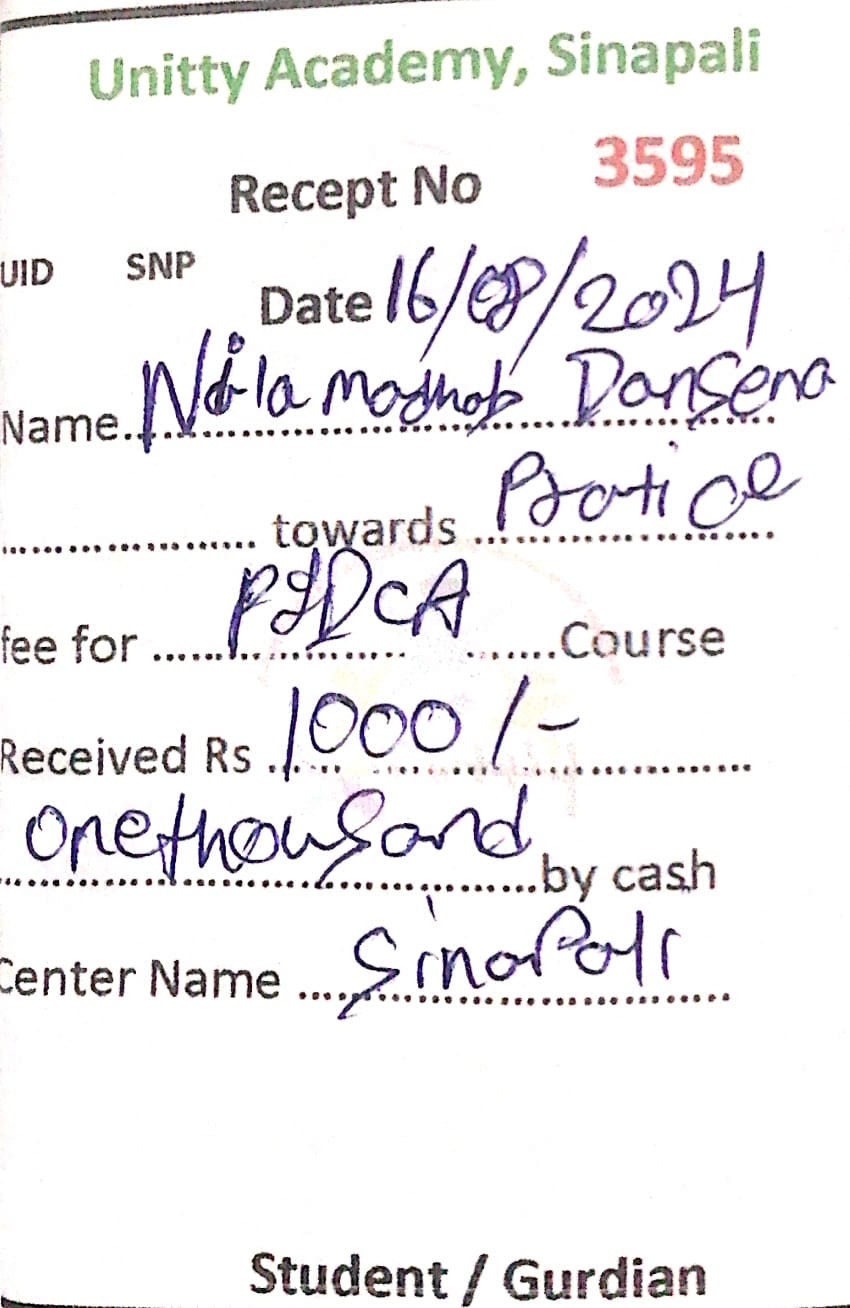 Unitty Academy, Sinapali
Recept No 3595
UID SNP
Date 16/08/2024
Name Nila madhab Dansena
towards
fee for PGDCA Course
Received Rs 1000/-
One thousand by cash
Center Name Sinapali
Student / Gurdian